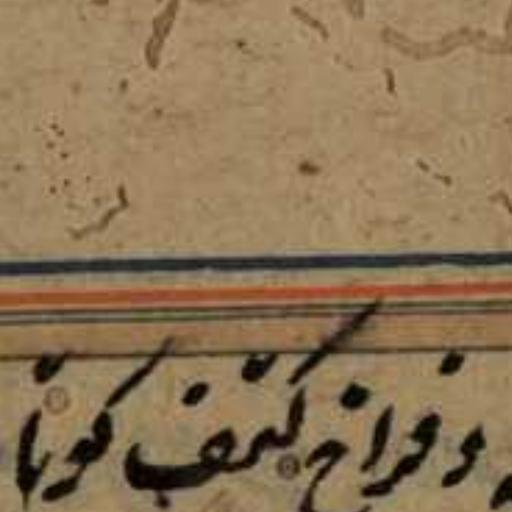 و فراخ کتف کوتا